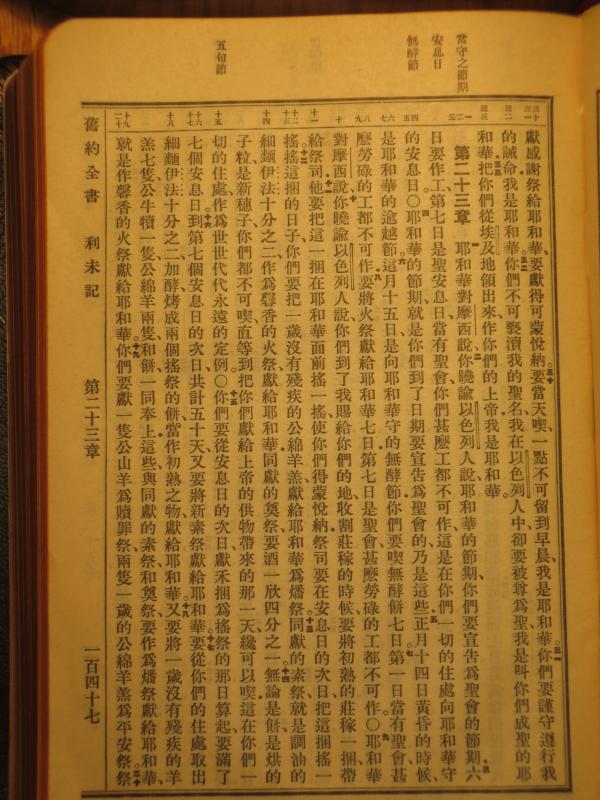 當守之節期
安息日
無酵節
五旬節
獻感謝祭給耶和華、要獻得可蒙悅納。三十要當天喫、一點不可留到早晨、我是耶和華。三一你們要謹守遵行我
的誡命、我是耶和華。三二你們不可褻瀆我的聖名、我在以色列人中卻要被尊爲聖、我是叫你們成聖的耶
和華、三三把你們從埃及地領出來、作你們的上帝、我是耶和華。
第二十三章 一耶和華對摩西說、二你曉諭以色列人說、耶和華的節期、你們要宣告爲聖會的節期。三六
日要作工、第七日是聖安息日、當有聖會、你們甚麼工都不可作、這是在你們一切的住處向耶和華守
的安息日。○四耶和華的節期、就是你們到了日期要宣告爲聖會的、乃是這些。五正月十四日、黃昏的時候、
是耶和華的逾越節。六這月十五日、是向耶和華守的無酵節、你們要喫無酵餅七日。七第一日當有聖會、甚
麼勞碌的工都不可作。八要將火祭獻給耶和華七日、第七日是聖會、甚麼勞碌的工都不可作。○九耶和華
對摩西說、十你曉諭以色列人說、你們到了我賜給你們的地、收割莊稼的時候、要將初熟的莊稼一捆帶
給祭司。十一他要把這一捆在耶和華面前搖一搖、使你們得蒙悅納、祭司要在安息日的次日把這捆搖一
搖。十二搖這捆的日子、你們要把一歲沒有殘疾的公綿羊羔獻給耶和華爲燔祭。十三同獻的素祭、就是調油的
細麵伊法十分之二、作爲馨香的火祭獻給耶和華、同獻的奠祭、要酒一欣四分之一。十四無論是餅、是烘的
子粒、是新穗子、你們都不可喫、直等到把你們獻給上帝的供物帶來的那一天、纔可以喫、這在你們一
切的住處作爲世世代代永遠的定例。○十五你們要從安息日的次日、獻禾捆爲搖祭的那日算起、要滿了
七個安息日。十六到第七個安息日的次日、共計五十天、又要將新素祭獻給耶和華。十七要從你們的住處取出
細麵伊法十分之二、加酵、烤成兩個搖祭的餅、當作初熟之物獻給耶和華。十八又要將一歲沒有殘疾的羊
羔七隻、公牛犢一隻、公綿羊兩隻、和餅一同奉上、這些與同獻的素祭和奠祭、要作爲燔祭獻給耶和華、
就是作馨香的火祭獻給耶和華。十九你們要獻一隻公山羊爲贖罪祭、兩隻一歲的公綿羊羔爲平安祭。二十祭
舊約全書 利未記 第二十三章 一百四十七